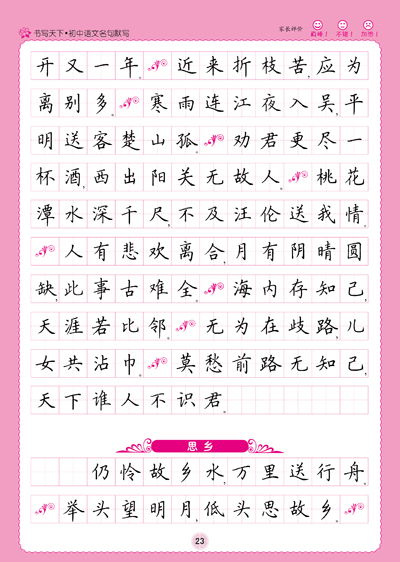 书写天下•初中语文名句默写
家长评价
真棒！ 不错！ 加油！
开又一年。近来折枝苦,应为
离别多。寒雨连江夜入吴,平
明送客楚山孤。劝君更尽一
杯酒,西出阳关无故人。桃花
潭水深千尺,不及汪伦送我情
。人有悲欢离合,月有阴晴圆
缺,此事古难全。海内存知己,
天涯若比邻。无为在歧路,儿
女共沾巾。莫愁前路无知己,
天下谁人不识君。
思乡
仍怜故乡水,万里送行舟
。举头望明月,低头思故乡。
23